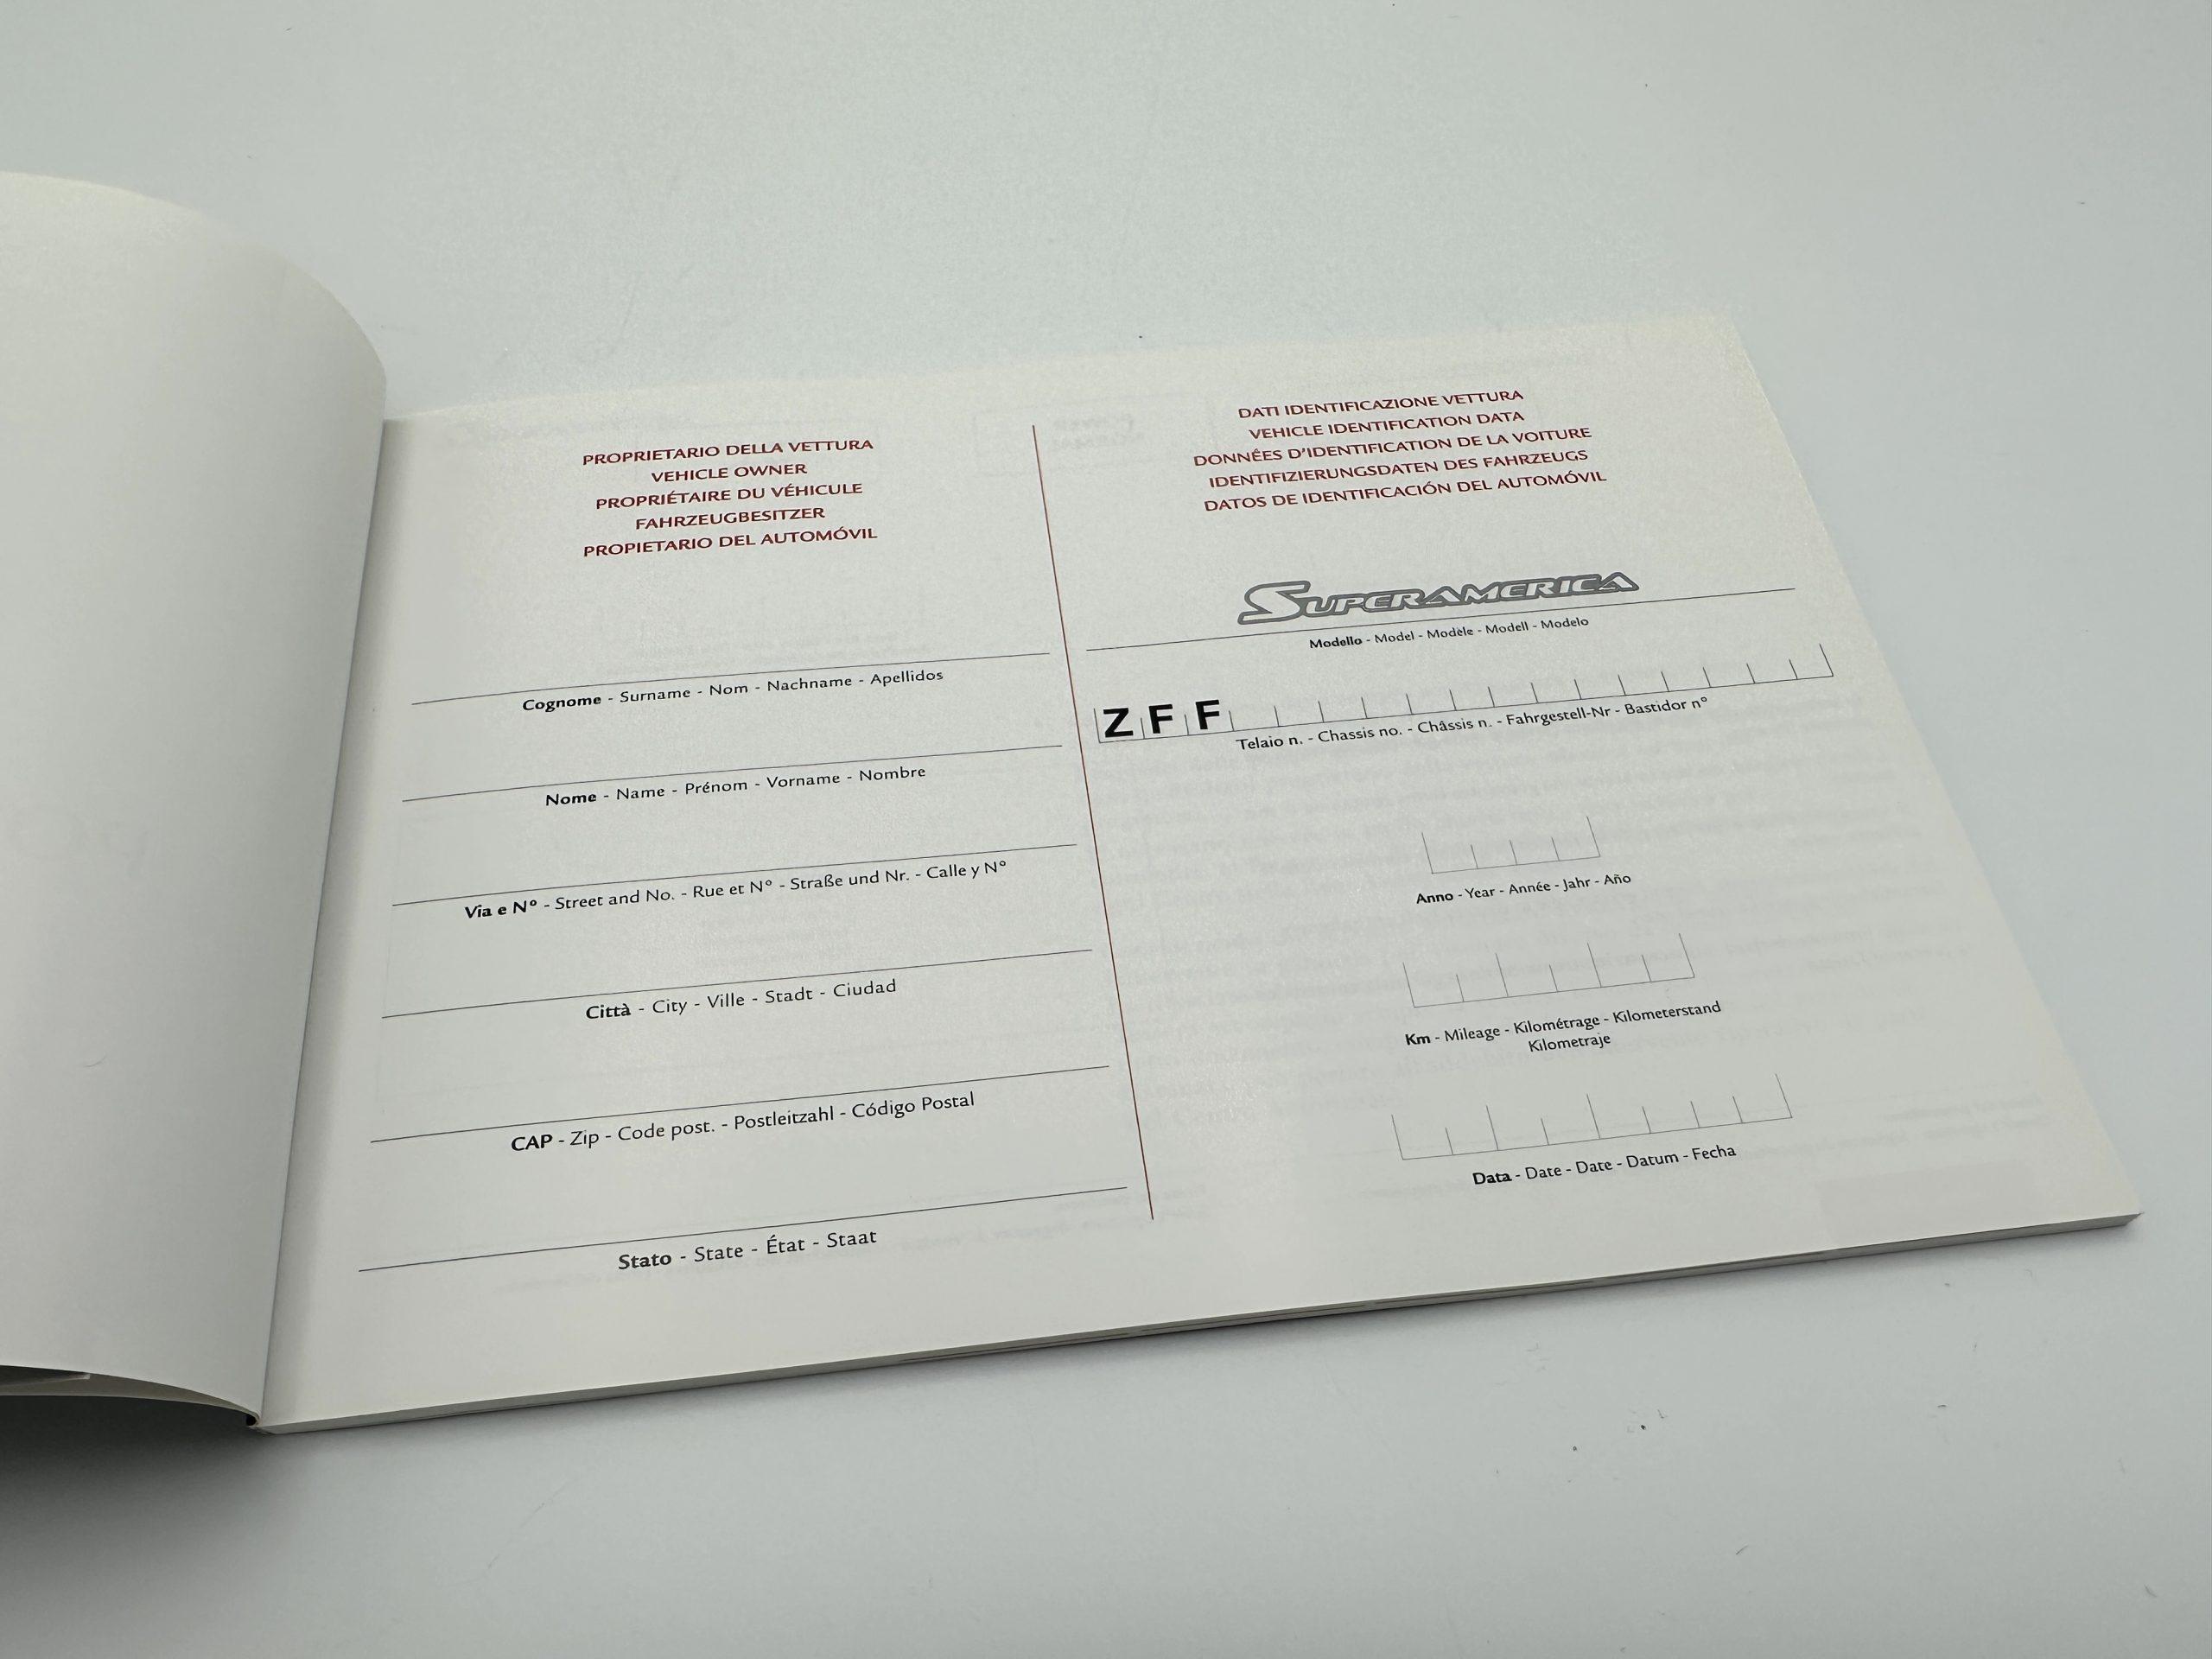 PROPRIETARIO DELLA VETTURA
VEHICLE OWNER
PROPRIÉTAIRE DU VÉHICULE
FAHRZEUGBESITZER
PROPIETARIO DEL AUTOMÓVIL
Cognome - Surname - Nom - Nachname - Apellidos
Nome - Name - Prénom - Vorname - Nombre
Via e N° - Street and No. - Rue et N° - Straße und Nr. - Calle y N°
Città - City - Ville - Stadt - Ciudad
CAP - Zip - Code post. - Postleitzahl - Código Postal
Stato - State - État - Staat
DATI IDENTIFICAZIONE VETTURA
VEHICLE IDENTIFICATION DATA
DONNÊES D'IDENTIFICATION DE LA VOITURE
IDENTIFIZIERUNGSDATEN DES FAHRZEUGS
DATOS DE IDENTIFICACIÓN DEL AUTOMÓVIL
SUPERAMERICA
Modello - Model - Modèle - Modell - Modelo
Z F F
Telaio n. - Chassis no. - Châssis n. - Fahrgestell-Nr - Bastidor n°
Anno - Year - Année - Jahr - Año
Km - Mileage - Kilométrage - Kilometerstand
Kilometraje
Data - Date - Date - Datum - Fecha